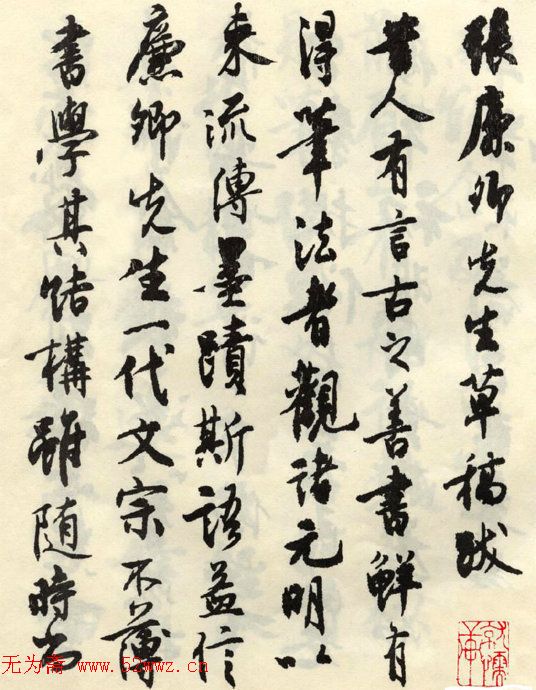 張廉卿先生草稿跋
昔人有言古之善書鮮有
得筆法者觀諸元明以
来流傳墨蹟斯語益信
廉卿先生一代文宗不薄
書學其結構雖随時尚
无为斋 www.52wwz.cn